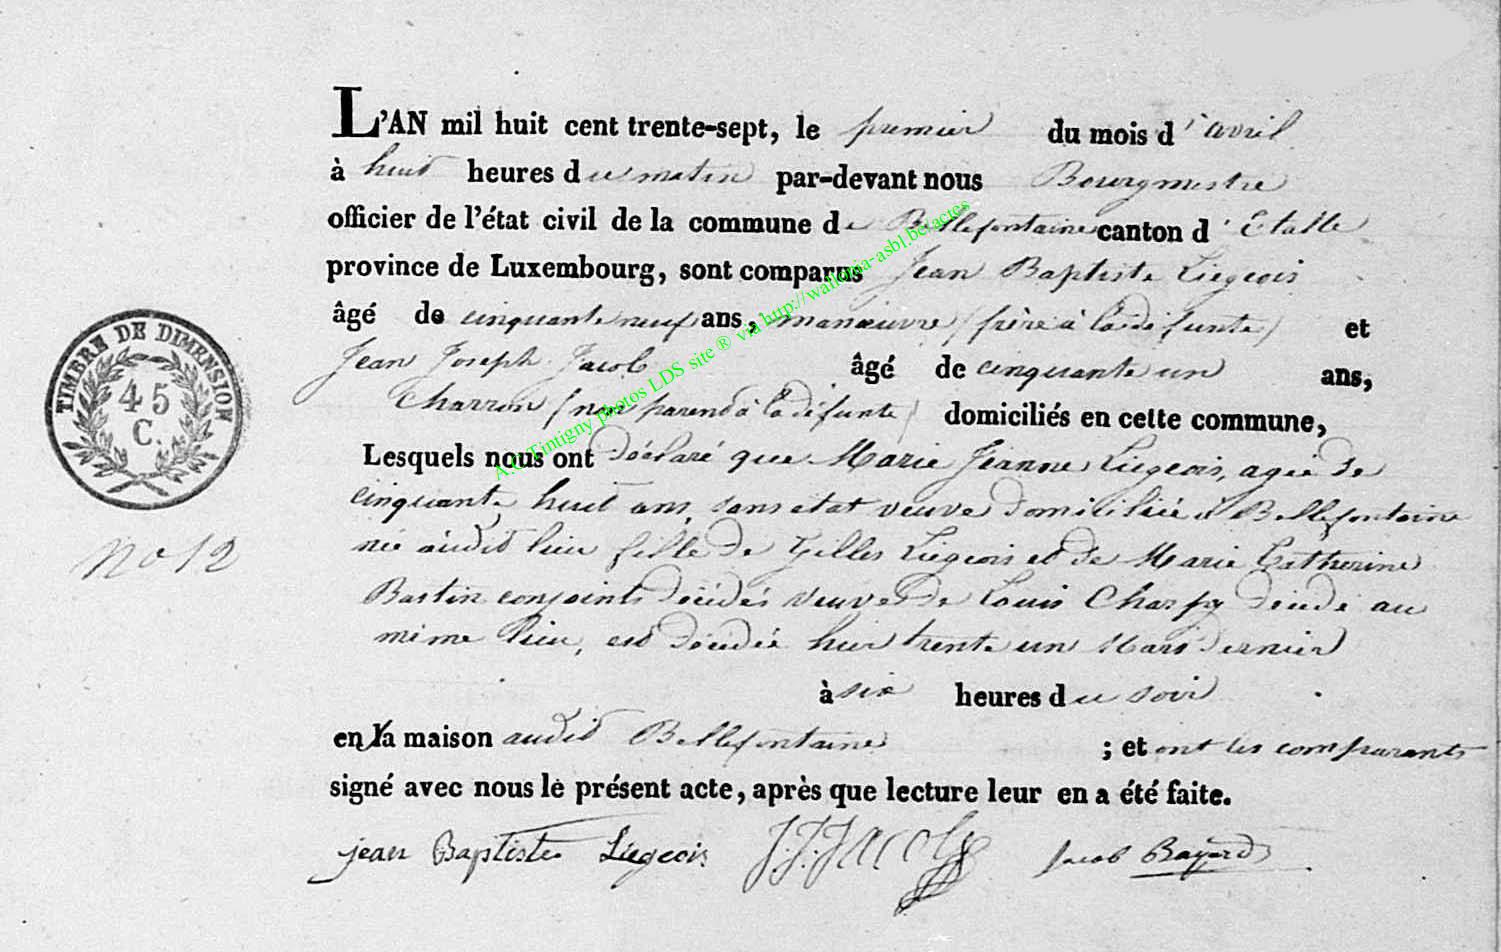 L'AN mil huit cent trente-sept, le premier du mois d'avril
à huit heures du matin par-devant nous Bourgmestre
officier de l'état civil de la commune de Bellefontaine canton d'Etalle
province de Luxembourg, sont comparus Jean Baptiste Liegeois
âgé de cinquante neuf ans, manœuvre (frère à la défunte) et
Jean Joseph Jacob âgé de cinquante un ans,
Charron (non parend à la défunte) domiciliés en cette commune,
Lesquels nous ont déclaré que Marie Jeanne Liegeois, agée de
cinquante huit ans, sans etat veuve domiciliée à Bellefontaine
née audit lieu fille de Gilles Liegeois et de Marie Catherine
Bastin conjoints décédés veuve de Louis Charpy décédé au
même lieu, est décédée hier trente un Mars dernier
à six heures du soir
en la maison audit Bellefontaine ; et ont les comparants
signé avec nous le présent acte, après que lecture leur en a été faite.
jean Baptiste Liegeois J.J. Jacob Jacob Bayard
TIMBRE DE DIMENSION
45
C.
No 12
A.C Tintigny photos LDS site ® via http://wallonia-asbl.be/actes